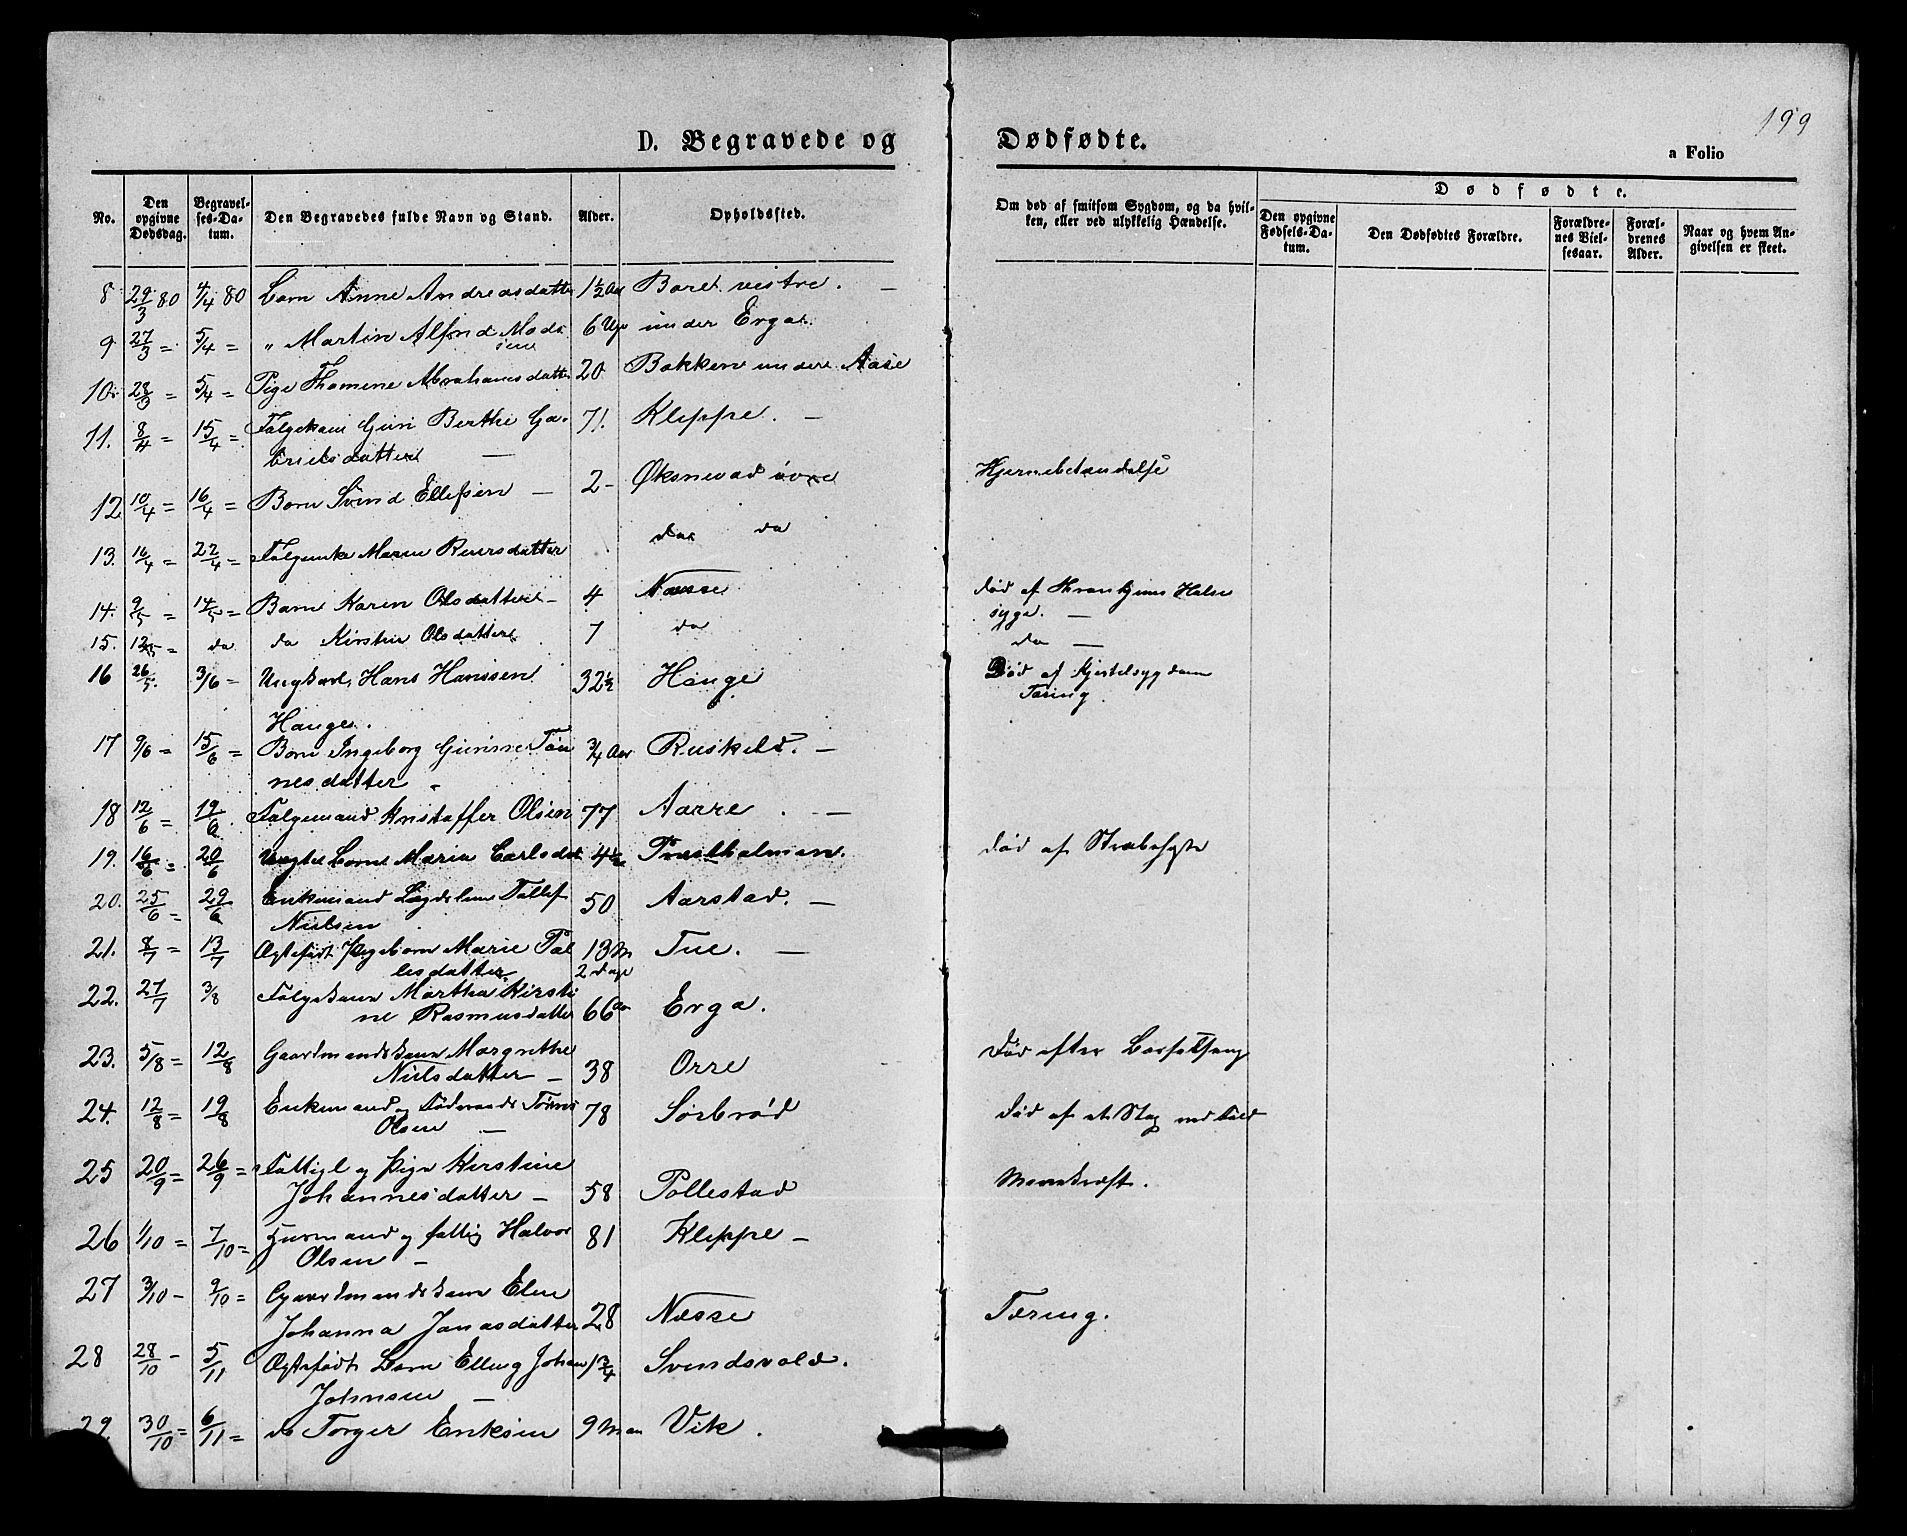 199
D. Begravede og Dødfødte.
a Folio
No.
Den opgivne Dødsdag.
Begravelses-Datum.
Den Begravedes fulde Navn og Stand.
Alder.
Opholdssted.
Om død af smitsom Sygdom, og da hvilken, eller ved ulykkelig Hændelse.
Dødfødte.
Den opgivne Fødsels-Datum.
Den Dødfødtes Forældre.
Forældrenes Vielsesaar.
Forældrenes Alder.
Naar og hvem Angivelsen er skeet.
8 29/3 80 4/4 80 Barn Anne Andreasdatter 1½ Aar Boret vestre. —
9 27/3 = 5/4 = " Martin Alfred Mads
sen 6 Uger under Erga.
10. 28/3 = 5/4 = Pige Thomine Abrahamsdatter 20 Bakken under Aase
11. 8/4 = 15/4 = Folgekone Guri Berthe Ga-
brielsdatter — 71. Kleppe. —
12 10/4 = 16/4 = Barn Svend Ellefsen — 2 - Øksnevad øvre Hjernebetændelse
13. 16/4 = 22/4 = Folgeenke Maren Reiersdatter do do
14. 9/5 = 14/5 = Barn Karen Olsdatter — 4 Næsse Død af Halse
syge. —
15. 12/5 = do do Kirstine Olsdatter 7 do do —
16 26/5. 3/6 = Ungkarl Hans Hanssen
Hauge. 32½ Hauge Død af Kjertelsygdom
Tæring
17 9/6 = 15/6 = Barn Ingeborg Gurine Tøn
nesdatter — ¾ Aar Ruskeld. —
18 12/6 = 19/6. Folgemand Kristoffer Olsen 77 Aarre. —
19. 16/6 = 20/6 Uægte Barn Maria Carlsdat 4½ Præstholmen. død af Strubehoste
20. 25/6 = 29/6 Enkemand Lægdslem Tollef
Nielsen. 50 Aarstad. —
21. 8/7 = 13/7 Ægtefødt Pigebarn Marie Tol
lesdatter 13 M
2 Dage Tue. —
22. 27/7 3/8 Folgekone Martha Kirsti
ne Rasmusdatter 66 Erga.
23. 5/8 = 12/8 Gaardmandskone Margrethe
Nielsdatter — 38 Orre Død efter Barselseng
24. 12/8 = 19/8 Enkemand og Føderaads Tønnes
Olsen — 78 Sørbrød død af et Slag ved Fald
25 20/9 = 26/9 = Fattigl og Pige Kirstine
Johannesdatter — 58 Pollestad Mavekræft.
26 1/10 = 7/10 = Huusmand og fattig Halvor
Olsen — 81 Kleppe —
27 3/10 - 9/10 = Gaardmandskone Elen
Johanna Jonasdatter 28 Næsse Tæring.
28 28/10 - 5/11 Ægtefødt Barn Elling Johan
Johnsen — 1¾ Svendsvold.
29. 30/10 = 6/11 = do Torger Eriksen 9 Maan Vik.